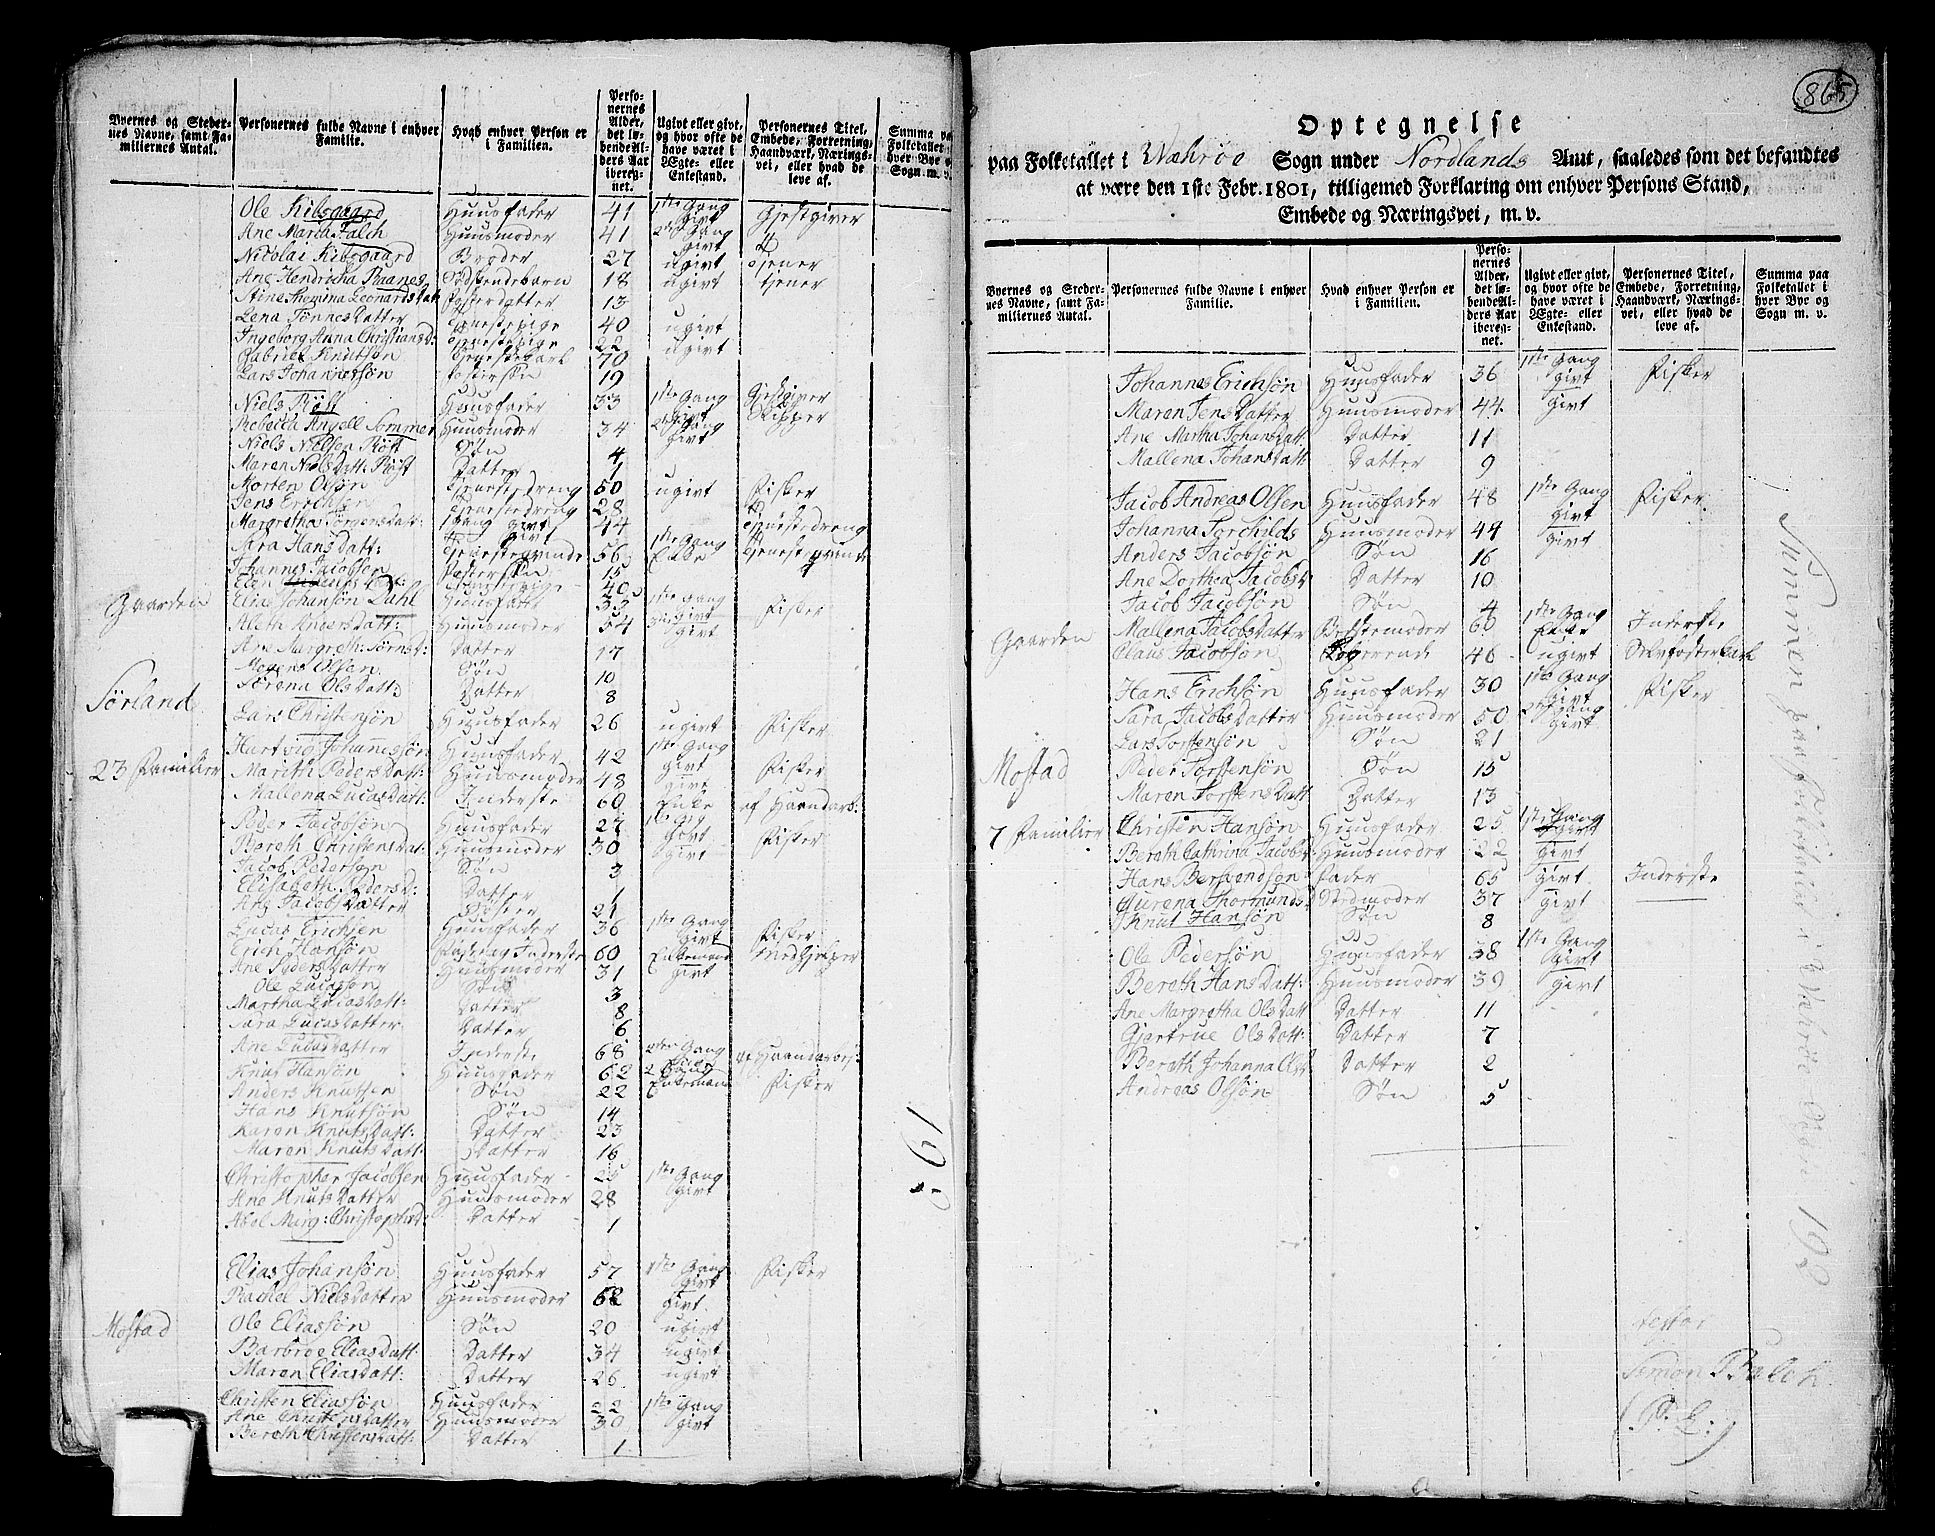 Byernes og Steder-
nes Navne, samt Fa-
miliernes Antal.
Personernes fulde Navne i enhver
Familie.
Hvad enhver Person er
i Familien.
Perso-
nernes
Alder,
det lø-
bende Al-
ders Aar
ibereg-
net.
Ugivt eller givt,
og hvor ofte de
have været i
Ægte- eller
Enkestand.
Personernes Titel,
Embede, Forretning,
Haandværk, Nærings-
vei, eller hvad de
leve af.
Summa paa
Folketallet i
hver Bye og
Sogn m. v.
Ole Kibsgaard Huusfader 41 1ste Gang givt Gjestgiver
Ane Maria Falch Huusmoder 41 2den Gang givt
Nicolai Kibsgaard Broder 27 ugivt tjener
Ane Hendricha Baanes Sødskendebarn 18 ugivt tjener
Stine Thomina Leonards Dat Fosterdatter 13
Lena Tønnes Datter Tjenestepige 40 ugivt
Ingeborg Anna Christians D: Tjenestepige 22 ugivt
Gabriel Knutsøn Tjenestekarl 70
Lars Johannessøn Fostersøn 19
Niels Røst Huusfader 33 1ste Gang givt Gjestgiver Skipper
Rebecca Angell Sommer Huusmoder 34 2den Gang givt
Niels Nielsen Røst Søn 4
Maren Niels Datt: Røst Datter 1
Morten Olsøn Tjenestedreng 50 ugivt Fisker
Jens Erichsen Tjenestedreng 28
Margretha Jørgens Datt: 1 gang givt 44 Tjenestedreng
Sara Hans Datt: Tjenesteqvinde 56 1ste Gang Enke Tjenest qvinde
Johannes Jacobsen Fostersøn 15
Elen 40
Gaarden
Elias Johansøn Dahl Huusfader 33 1ste Gang givt Fisker
Aleth Anders Datt: Huusmoder 54 givt
Ane Margreth: Tørris D: Datter 17
Mogens Olsen Søn 10
Sørena Ols Datt: Datter 8
Sørland
Lars Christensøn Huusfader 26 ugivt Fisker
23 Familier
Hartvig Johannessøn Huusfader 42 1ste Gang givt Fisker
Marith Peders Datt: Huusmoder 48 givt
Mallena Lucas Datt: Inderste 60 Enke af Haandarb:
Peder Jacobsøn Huusfader 27 givt Fisker
Bereth Christens Dat: Huusmoder 30 givt
Jacob Pedersøn Søn 3
Elisabeth Peders D: Datter 1
Ane Jacobs Datter Søster 21
Lucas Erichsen Huusfader 36 1ste Gang givt Fisker
Erich Hansøn Fader og Inderste 60 Enkemand Medhjelper
Ane Peders Datter Huusmoder 31 givt
Ole Lucassøn Søn 3
Martha Lucas Datt: Datter 8
Sara Lucas Datter Datter 6
Ane Lucas Datter Inderste 68 2den Gang Enke af Haandarbej:
Knut Hansøn Huusfader 62 Enkemand Fisker
Anders Knutsen Søn 22
Hans Knutsøn Søn 14
Karen Knuts Datt: Datter 23
Maren Knuts Datt: Datter 16
Christopher Jacobsen Huusfader 25 1ste Gang givt
Ane Knuts Datter Huusmoder 28
Abel Marg: Christophs D: Datter 1
Elias Johansøn Huusfader 57 1ste Gang givt Fisker
Rachel Niels Datter Huusmoder 62 givt
Mostad
Ole Eliassøn Søn 20 ugivt
Barbroe Elias Datt Datter 34 ugivt
Maren Elias Datt: Datter 26 ugivt
Christen Eliassøn Huusfader 22 1ste Gang
Ane Christens Datter Huusmoder 30 givt
Bereth Christens Datt: Datter 1
561
865
Optegnelse
paa Folketallet i Wæhrøe Sogn under Nordlands Amt, saaledes som det befandtes
at være den 1ste Febr. 1801, tilligemed Forklaring om enhver Persons Stand,
Embede og Næringsvei, m. v.
Byernes og Steder-
nes Navne, samt Fa-
miliernes Antal.
Personernes fulde Navne i enhver
Familie.
Hvad enhver Person er
i Familien.
Perso-
nernes
Alder,
det lø-
bende Al-
ders Aar
ibereg-
net.
Ugivt eller givt,
og hvor ofte de
have været i
Ægte- eller
Enkestand.
Personernes Titel,
Embede, Forretning,
Haandværk, Nærings-
vei, eller hvad de
leve af.
Summa paa
Folketallet i
hver Bye og
Sogn m. v.
Johannes Erichsøn Huusfader 36 1ste Gang givt Fisker
Maren Jens Datter Huusmoder 44 givt
Ane Martha Johans Datt: Datter 11
Mallena Johans Datt: Datter 9
Jacob Andreas Olsen Huusfader 48 1ste Gang givt Fisker
Johanna Torchilds Huusmoder 44 givt
Anders Jacobsøn Søn 16
Ane Dorthea Jacobs D: Datter 10
Jacob Jacobsøn Søn 4
Gaarden
Mallena Jacobs Datter Bedstemoder 60 1ste Gang Enke Inderste
Claus Jacobsøn Logerende 46 ugivt Selvfoster Karl
Hans Erichsøn Huusfader 30 1ste Gang givt Fisker
Sara Jacobs Datter Huusmoder 50 2den Gang givt
Lars Torstensøn Søn 21
Mostad
Peder Torstensøn Søn 15
Maren Torstens Datt Datter 13
7 Familier
Christen Hansøn Huusfader 25 1ste Gang givt
Bereth Cathrina Jacobs D: Huusmoder 22 givt
Hans Berthendsøn Fader 65 givt Inderste
Gurena Thormunds D Stedmoder 37 givt
Knut Hansøn Søn 8
Ole Pedersøn Huusfader 38 1ste Gang givt
Bereth Hans Datt: Huusmoder 39 givt
Ane Margretha Ols Datt Datter 11
Gjertrue Ols Datt: Datter 7
Bereth Johanna Ols D Datter 2
Andreas Olsøn Søn 5
Summen paa Folketallet i Wæhrøe Sogn 198
testor
Simon Balch
(P. L:)